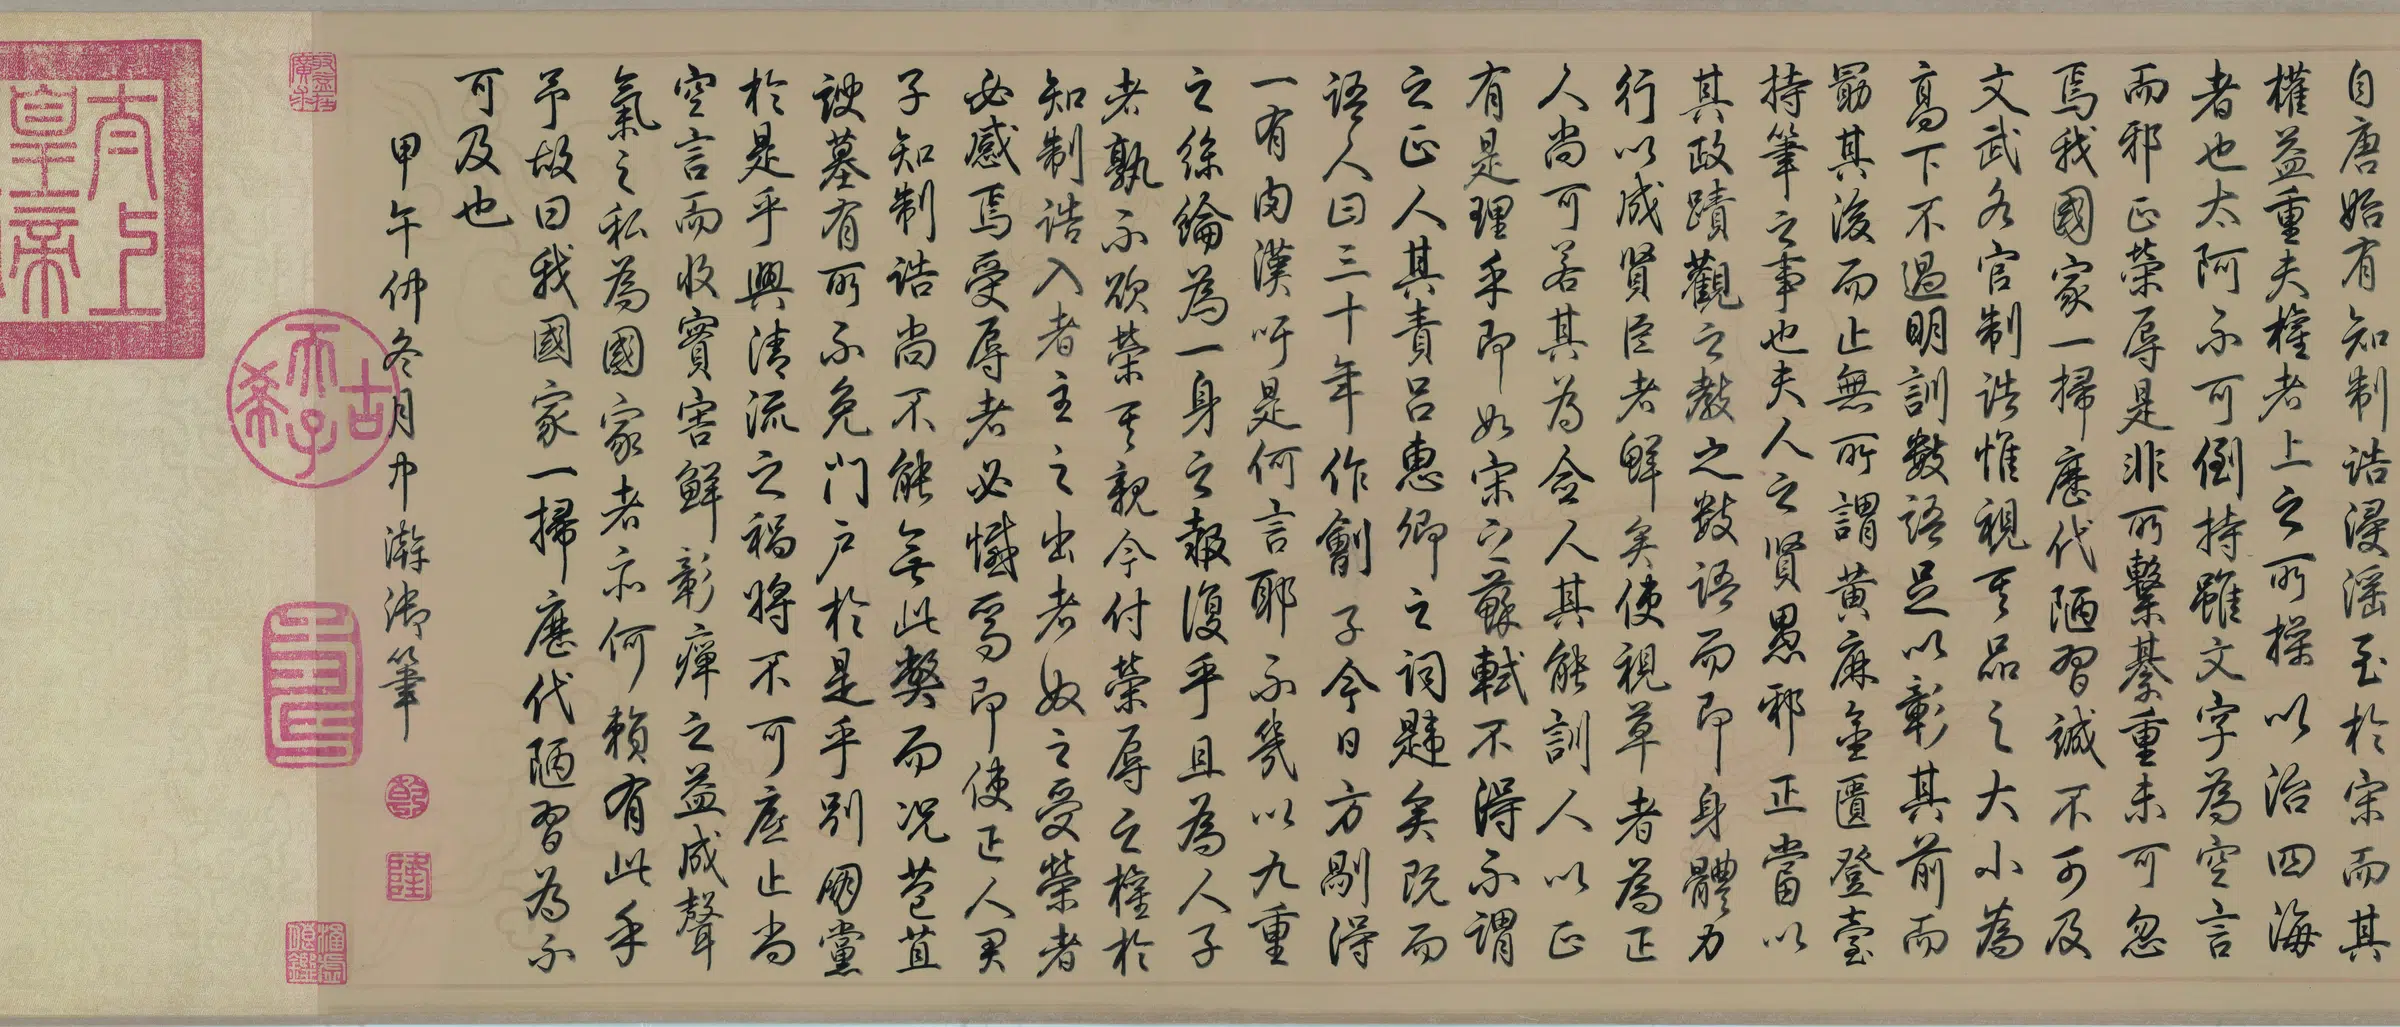 自唐始有知制誥浸淫至於宋而其
權益重夫權者上之所操以治四海
者也太阿不可倒持雖文字為空言
而邪正榮辱是非所繫綦重未可忽
焉我國家一掃歷代陋習誠不可及
文武各官制誥惟視其品之大小為
高下不過明訓數語足以彰其前而
勗其後而止無所謂黃麻金匱登臺
持筆之事也夫人之賢愚邪正當以
其政蹟觀之教之數語而即身體力
行以成賢臣者鮮矣使視草者為正
人尚可若其為僉人其能訓人以正
有是理乎即如宋之蘇軾不得不謂
之正人其責呂惠卿之詞韙矣既而
語人曰三十年作劊子今日方剮得
一有肉漢吁是何言耶不幾以九重
之絲綸為一身之報復乎且為人子
者孰不欲榮其親今付榮辱之權於
知制誥入者主之出者奴之受榮者
必感焉受辱者必憾焉即使正人君
子知制誥尚不能無此弊而況苞苴
諛墓有所不免門戶於是乎別朋黨
於是乎興清流之禍將不可底止尚
空言而收實害鮮彰癉之益成聲
氣之私為國家者亦何賴有此乎
予故曰我國家一掃歷代陋習為不
可及也
甲午仲冬月中澣御筆
乾
隆
古希天子
太上皇帝